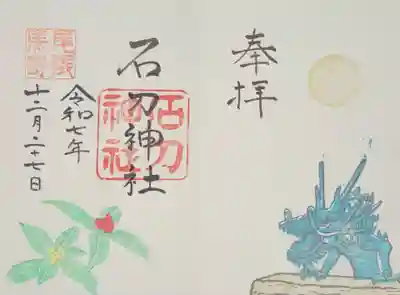 奉拝
石刀神社
石刀
神社
令和七年
十二月二十七日